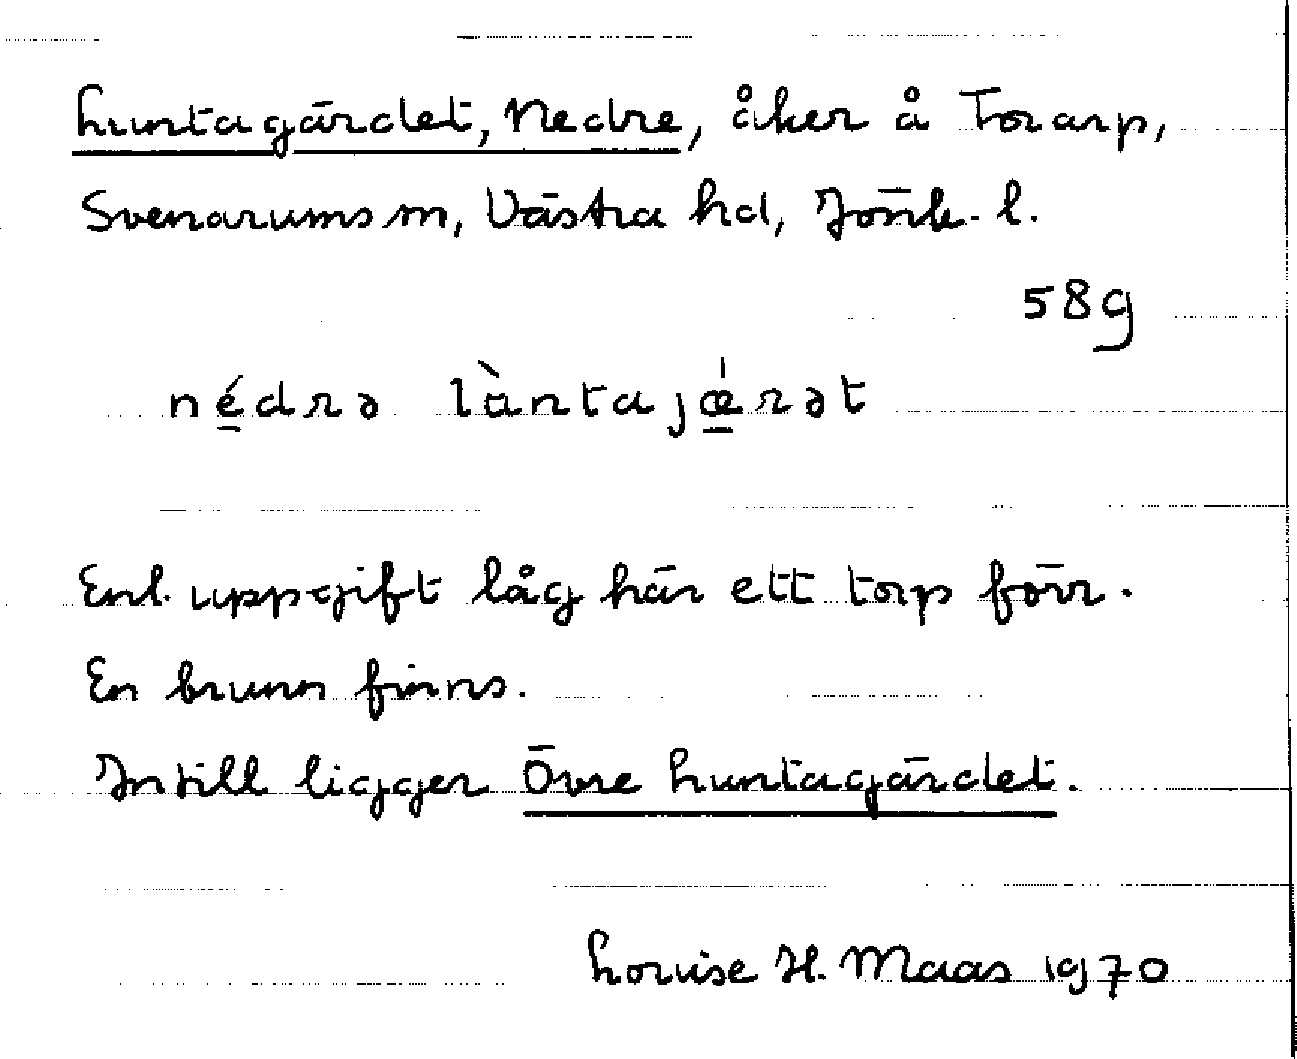 Luntagärdet, Nedre, åker å Torarp,
Svenarums sn, Västra hd, Jönk. l.
58g
né̲drə làntajǽ̲rət
Enl. uppgift låg här ett torp förr.
En brunn finns.
Intill ligger Övre Luntagärdet.
Louise H. Maas 1970